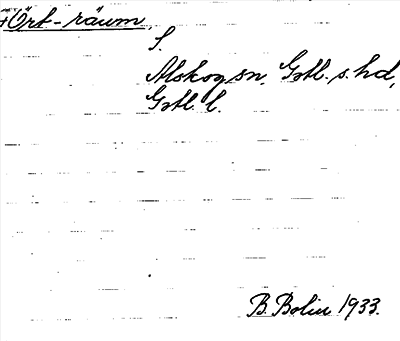 +Ört-räum,
S.
Alskog sn. Gotl. s. hd,
Gotl. l.
B. Bolin 1933.